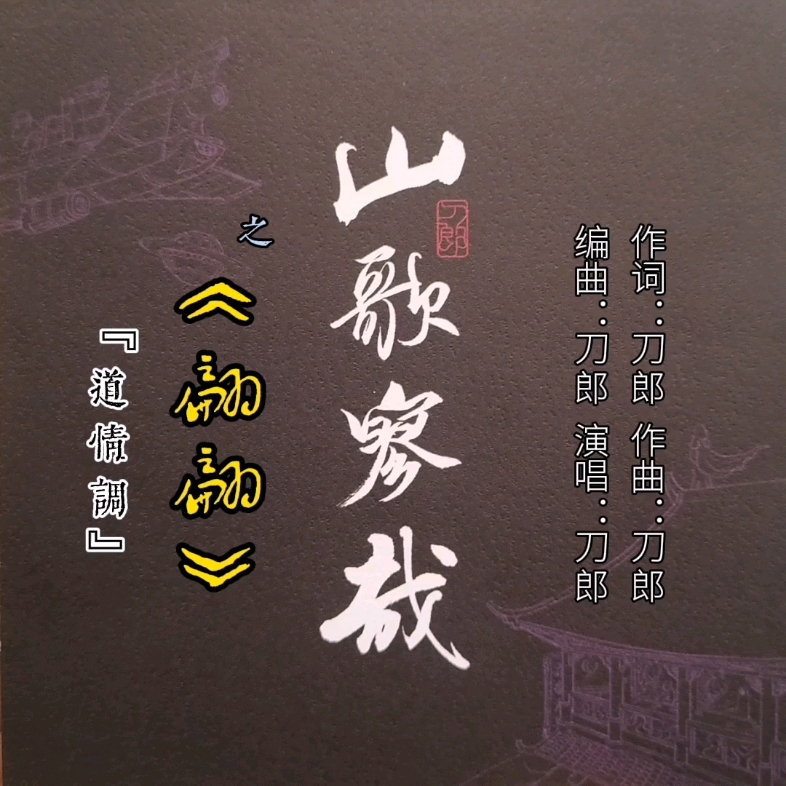 作词：刀郎 作曲：刀郎
编曲：刀郎 演唱：刀郎
山歌寥哉
刀郎
之
《翩翩》
『道情調』